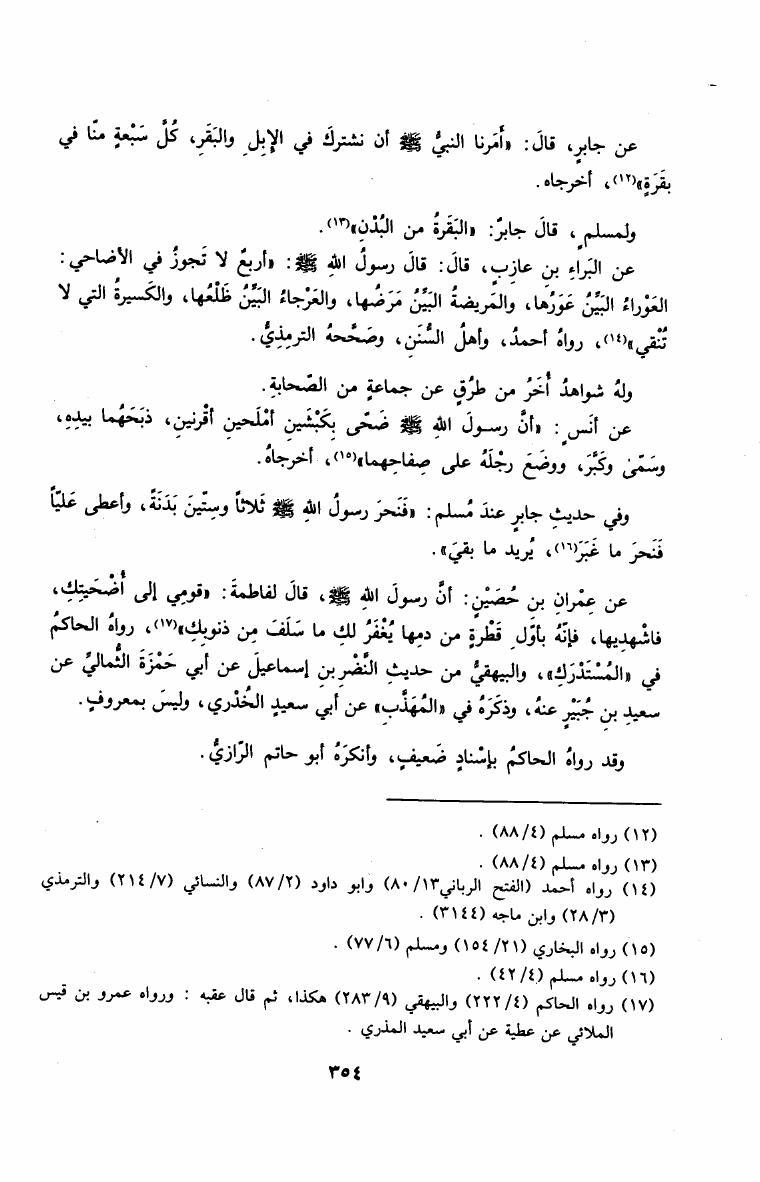 عن جابرٍ، قالَ: «أَمَرنا النبيُّ ﷺ أن نشتركَ في الإبِلِ والبَقَرِ، كُلُّ سَبْعةٍ منّا في
بقَرَةٍ»(١٢)، أخرجاه.
ولمسلمٍ، قالَ جابرٌ: «البَقَرةُ من البُدْنِ»(١٣).
عن البَراءِ بنِ عازِبٍ، قالَ: قالَ رسولُ اللهِ ﷺ: «أربعٌ لا تَجوزُ في الأضاحي:
العَوْراءُ البَيِّنُ عَوَرُها، والمَريضةُ البَيِّنُ مَرَضُها، والعَرْجاءُ البَيِّنُ ظَلْعُها، والكَسيرةُ التي لا
تُنْقي»(١٤)، رواهُ أحمدُ، وأهلُ السُّنَنِ، وصَحَّحهُ الترمِذيُّ.
ولهُ شواهدُ أُخَرُ من طرُقٍ عن جماعةٍ من الصّحابةِ.
عن أنَسٍ: «أنَّ رسولَ اللهِ ﷺ ضَحّى بِكَبْشَينِ أمْلَحينِ أقْرنينِ، ذبَحَهُما بيدِهِ،
وسَمّىٰ وكَبَّرَ، ووضَعَ رِجْلَهُ على صِفاحِهما»(١٥)، أخرجاهُ.
وفي حديثِ جابرٍ عندَ مُسلم: «فَنَحرَ رسولُ اللهِ ﷺ ثَلاثاً وسِتّينَ بَدَنَةً، وأعطى عَليّاً
فَنَحرَ ما غَبَرَ(١٦)، يُريد ما بقيَ».
عن عِمْرانِ بن حُصَيْنٍ: أنَّ رسولَ اللهِ ﷺ، قالَ لفاطمةَ: «قومي إلى أُضْحَيتِكِ،
فاشْهديها، فإنّهُ بأوّلِ قَطْرةٍ من دمِها يُغْفَرُ لكِ ما سَلَفَ مِن ذنوبِكِ»(١٧)، رواهُ الحاكمُ
في «المُسْتَدْرَكِ»، والبيهقيُّ من حديثِ النَّضْرِ بنِ إسماعيلَ عن أبي حَمْزَةَ الثُّماليِّ عن
سعيدِ بن جُبَيْرٍ عنهُ، وذكَرَهُ في «المُهَذَّبِ» عن أبي سعيدٍ الخُدْري، وليسَ بمعروفٍ.
وقد رواهُ الحاكمُ بإسْنادٍ ضَعيفٍ، وأنكرَهُ أبو حاتم الرّازيُّ.
(١٢) رواه مسلم (٨٨/٤) .
(١٣) رواه مسلم (٨٨/٤) .
(١٤) رواه أحمد (الفتح الرباني٨٠/١٣) وابو داود (٨٧/٢) والنسائي (٢١٤/٧) والترمذي
(٢٨/٣) وابن ماجه (٣١٤٤) .
(١٥) رواه البخاري (١٥٤/٢١) ومسلم (٧٧/٦) .
(١٦) رواه مسلم (٤٢/٤) .
(١٧) رواه الحاكم (٢٢٢/٤) والبيهقي (٢٨٣/٩) هكذا، ثم قال عقبه : ورواه عمرو بن قيس
الملائي عن عطية عن أبي سعيد المذري .
٣٥٤